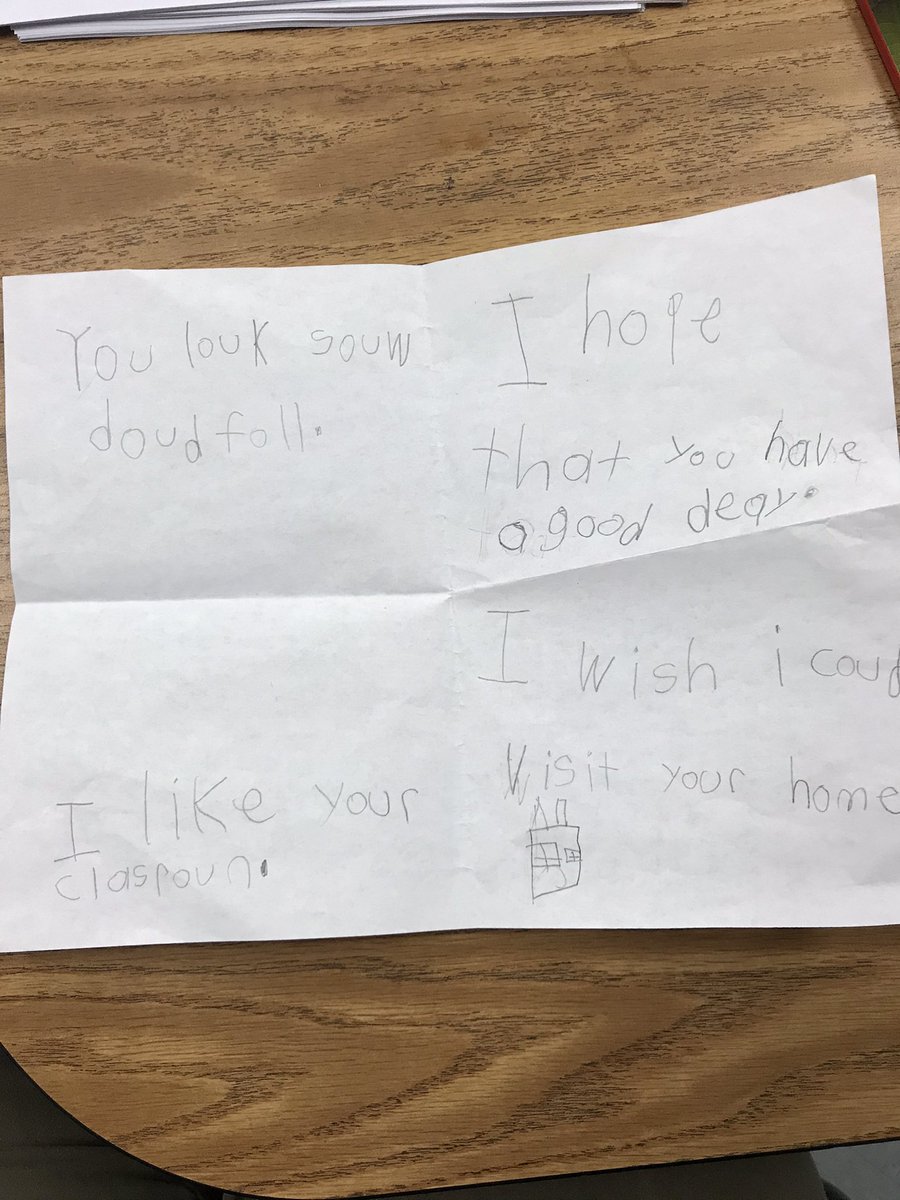 You louk souw
doudfoll.
I hope
that you have
a good deay.
I like your
clasroun.
I wish i coud
Visit your home